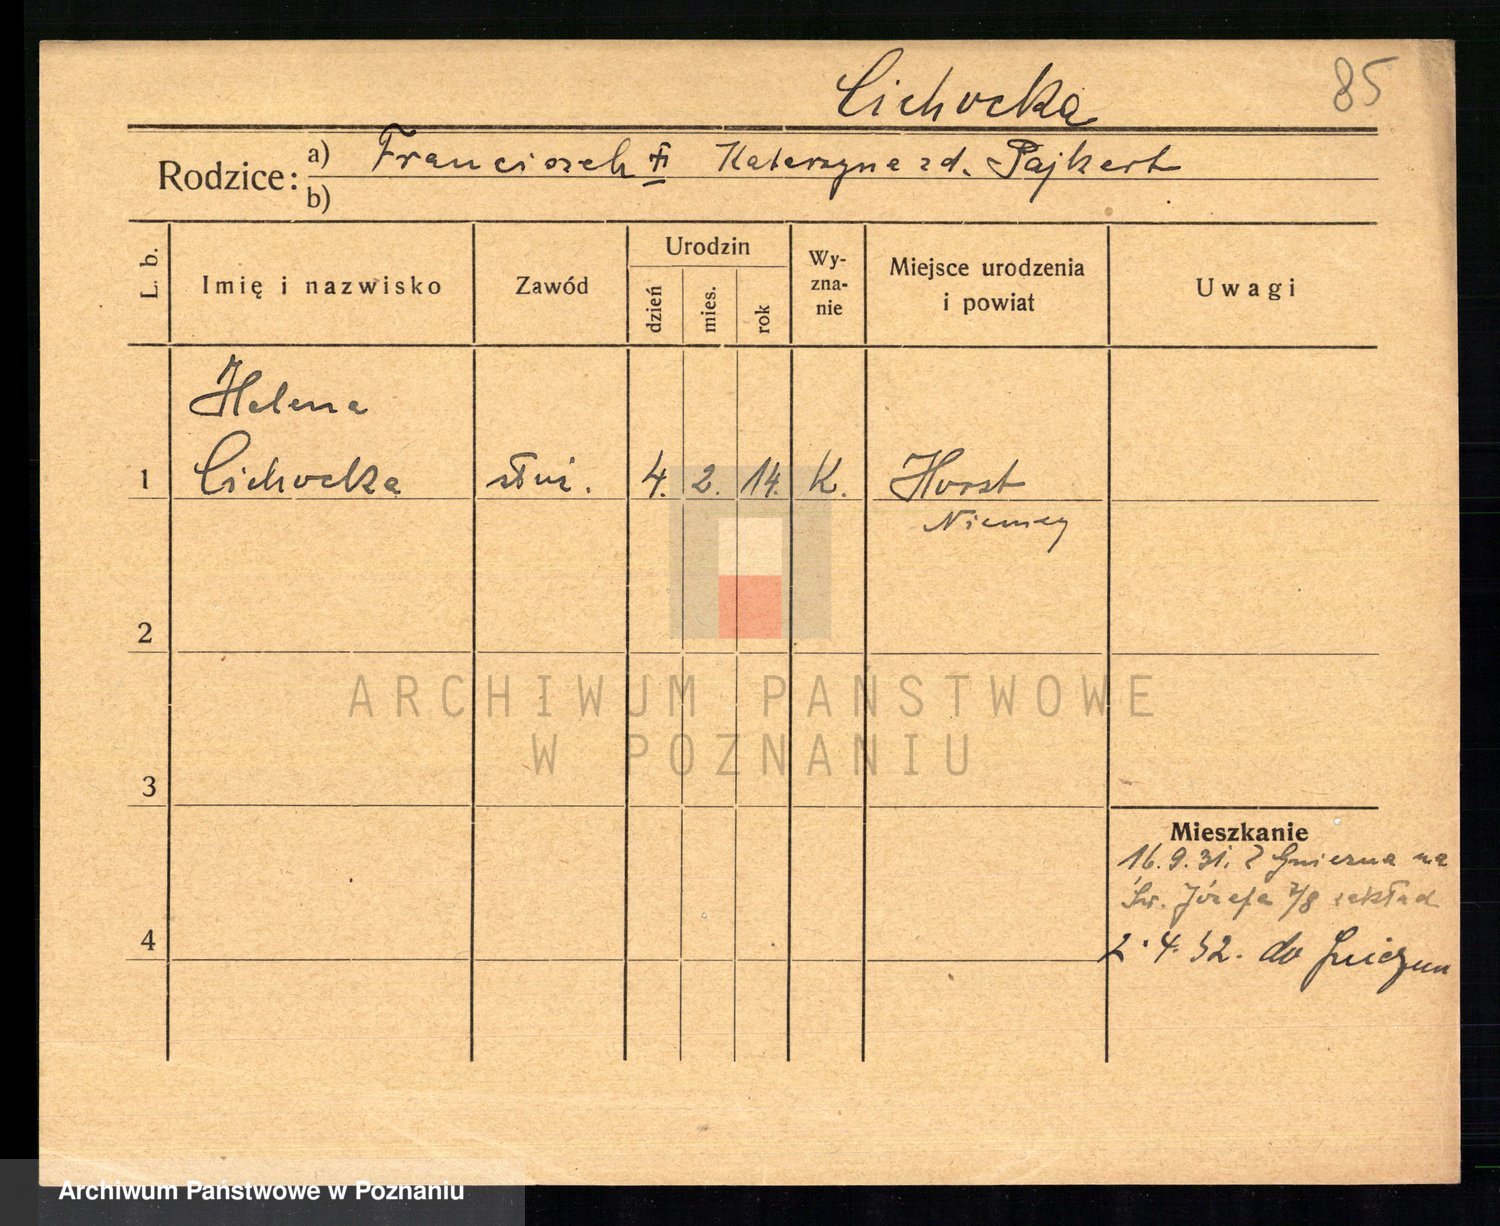 Cichocka
85
Rodzice:
a) Franciszek Katarzyna zd. Pajkert
b)
L. b.
Imię i nazwisko
Zawód
Urodzin
dzień
mies.
rok
Wy-
zna-
nie
Miejsce urodzenia
i powiat
Uwagi
Helena
1 Cichocka służ. 4. 2. 14. K. Horst
Niemcy
2
3
4
Mieszkanie
16.9.31. Z Gniezna na
Św. Józefa 7/8 zakład
2.4.32. do
ARCHIWUM PAŃSTWOWE
W POZNANIU
Archiwum Państwowe w Poznaniu